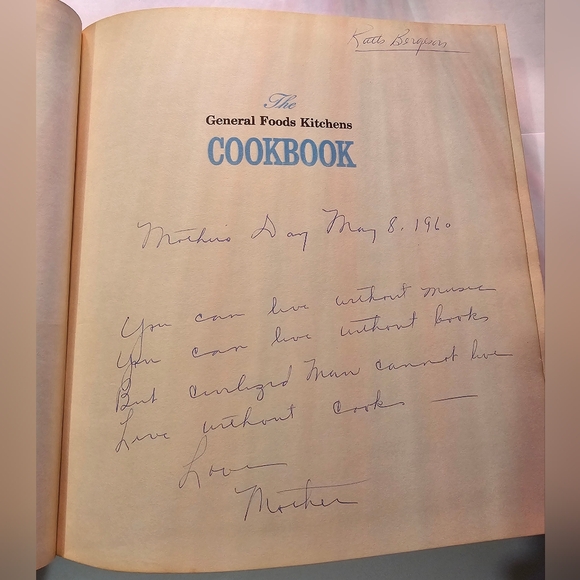 Bergeson
The
General Foods Kitchens
COOKBOOK
Mother's Day May 8, 1960
You can live without music
You can live without books
But civilized Man cannot live
Live without cooks —
Love
Mother